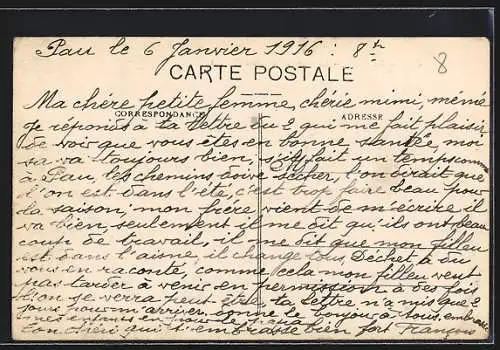 Pau le 6 Janvier 1916 : 8 h
8
CARTE POSTALE
Ma chère petite femme, chérie mimi, mémé
CORRESPONDANCE ADRESSE
Je réponds à ta lettre du 2 qui me fait plaisir
de voir que vous êtes en bonne santée, moi
sa va toujours bien, il fait un temps comme
à Pau, les chemins secher, l'on dirait que
l'on est dans l'été, c'est trop faire beau pour
la saison, mon frère vient de m'écrire il
va bien, seulement il me dit qu'ils ont beau
coup de travail, il me dit que mon filleu
est dans l'aisne, il change tous, Déchet, a du
vous en raconté, comme cela mon filleu veut
pas tarder à venir en permission à des fois
l'on se verra peut être, ta lettre n'a mis que 2
jours pour m'arriver, donne le bonjour à tous, embrasse
mes enfants pour le papa
ton chéri qui t'embrasse bien fort François